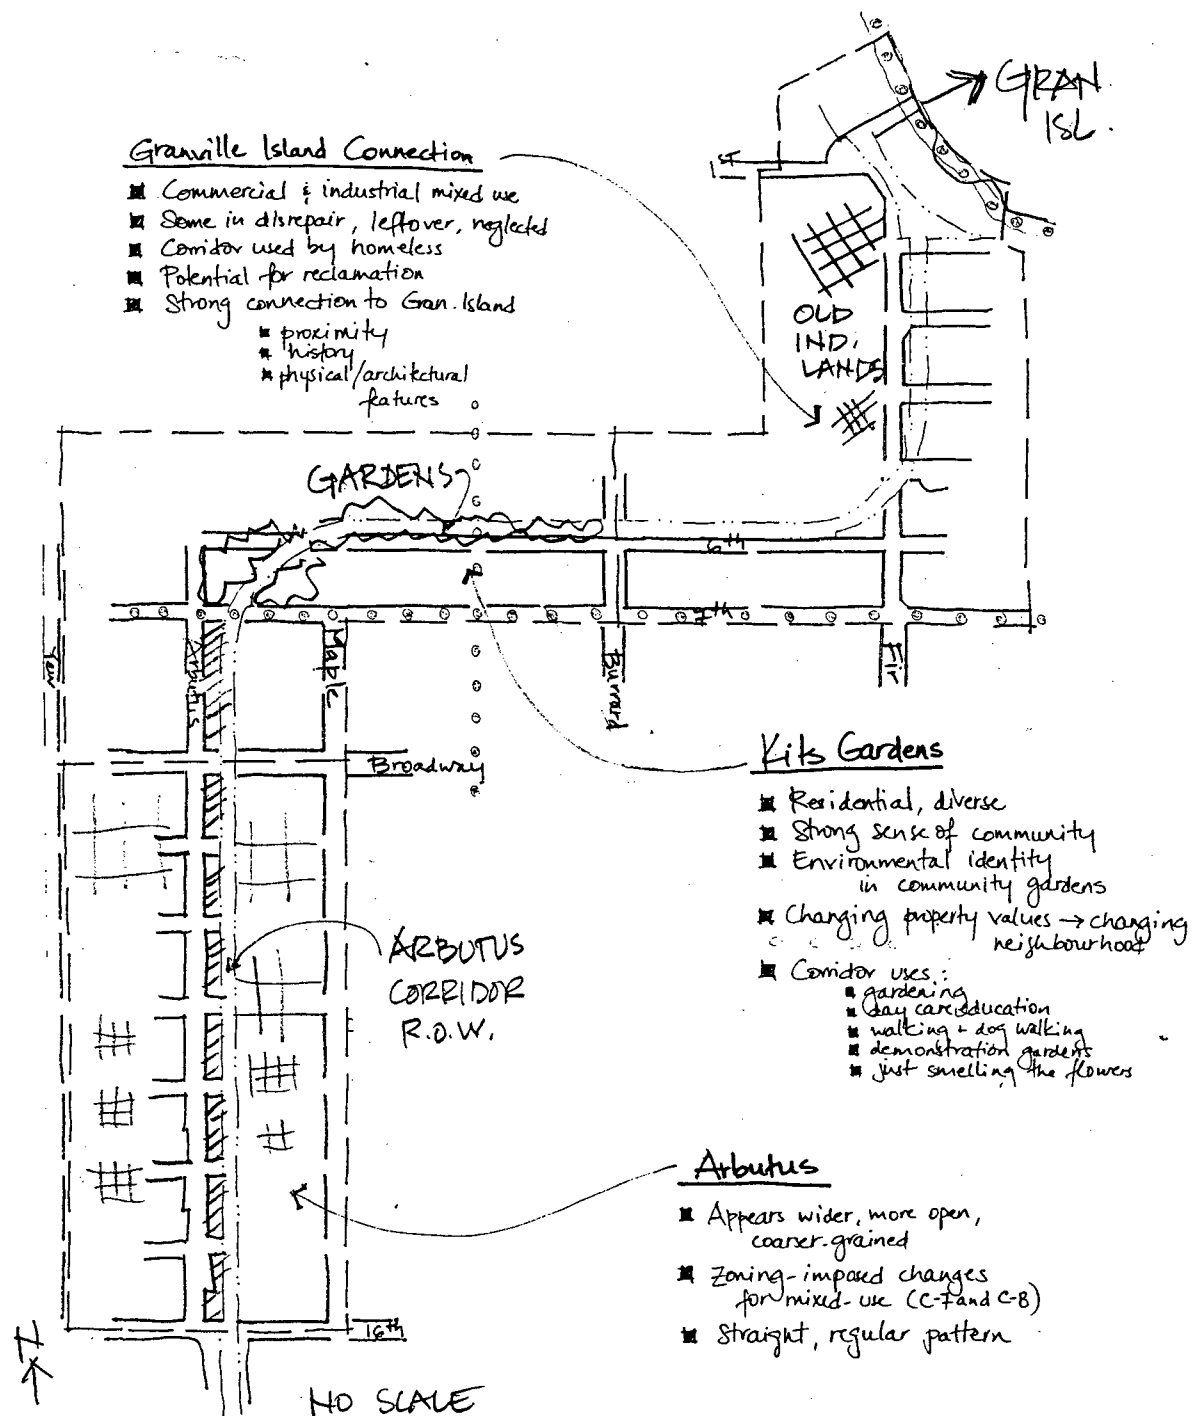 GRAN.
ISL.
1ST
Granville Island Connection
Commercial & industrial mixed use
Some in disrepair, leftover, neglected
Corridor used by homeless
Potential for reclamation
Strong connection to Gran. Island
proximity
history
physical/architectural
features
OLD
IND.
LANDS
GARDENS
6th
7th
Yew
Arbutus
Maple
Burrard
Fir
Broadway
Kits Gardens
Residential, diverse
Strong sense of community
Environmental identity
in community gardens
Changing property values → changing
neighbourhood
Corridor uses:
gardening
day care, education
walking + dog walking
demonstration gardens
just smelling the flowers
ARBUTUS
CORRIDOR
R.O.W.
Arbutus
Appears wider, more open,
coarser-grained
Zoning-imposed changes
for mixed-use (C-7 and C-8)
Straight, regular pattern
16th
N
NO SCALE